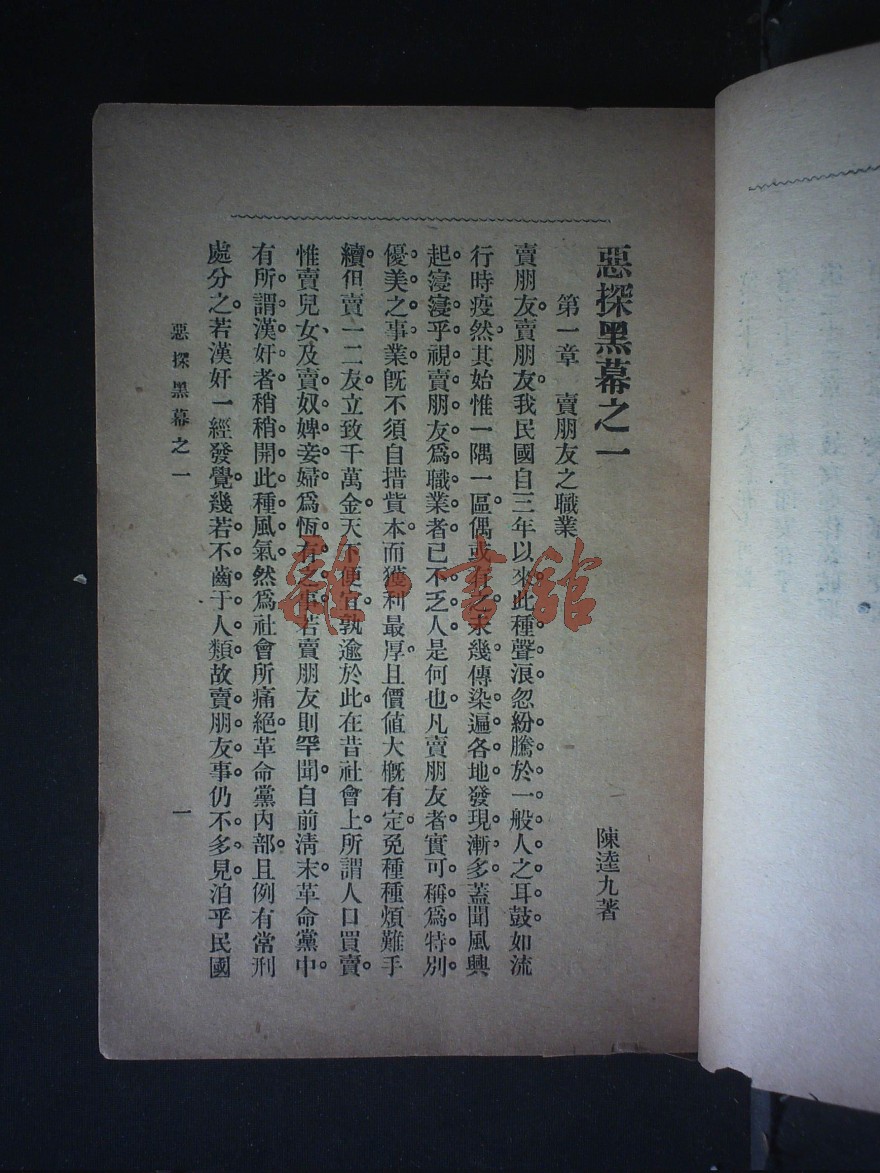 惡探黑幕之一
陳逵九著
第一章 賣朋友之職業
賣朋友。賣朋友。我民國自三年以來。此種聲浪忽紛騰於一般人之耳鼓。如流
行時疫。然其始惟一隅一區。偶或有之。未幾傳染遍各地。發現漸多。蓋聞風興
起。寖寖乎視賣朋友爲職業者已不乏人。是何也。凡賣朋友者。實可稱爲特別
優美之事業。旣不須自措貲本。而獲利最厚。且價值大槪有定。免種種煩難手
續。但賣一二友。立致千萬金。天下便宜。孰逾於此。在昔社會上所謂人口買賣。
惟賣兒女、及賣奴婢妾婦。爲恆有之事。若賣朋友則罕聞。自前淸末革命黨中。
有所謂漢奸者。稍稍開此種風氣。然爲社會所痛絕。革命黨內部。且例有常刑
處分之。若漢奸一經發覺。幾若不齒于人類。故賣朋友事。仍不多見。洎乎民國
惡探黑幕之一
一
雜·書館